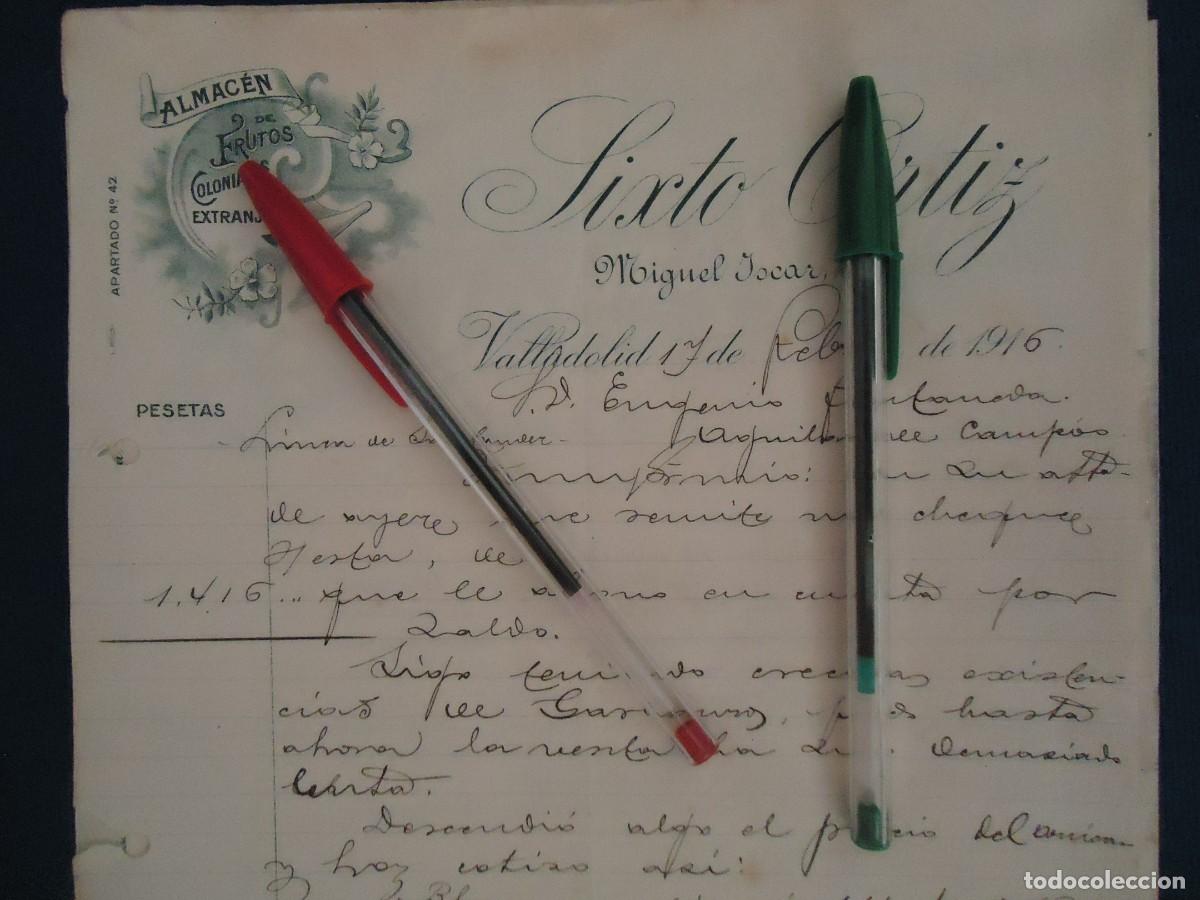 ALMACÉN
DE
FRUTOS
COLONIA
EXTRANJ
APARTADO Nº 42
Sixto Ortiz
Miguel Iscar,
Valladolid 17 de Feb de 1916.
PESETAS
D. Eugenio
Linea de Aguilar de Campos
su atta
de ayer me remite un cheque
s/esta, de
1.416.. que le abono en cuenta por
saldo.
Sigo teniendo crecidas existen-
cias de Garbanzos, pues hasta
ahora la venta ha sido demasiado
lenta.
Descendió algo el precio del
y hoy cotizo así:
todocoleccion